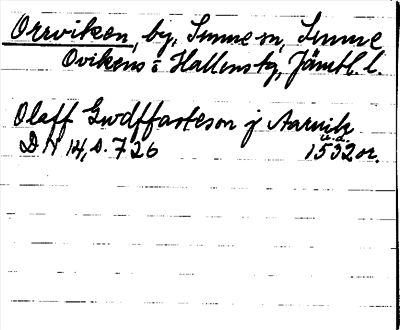 Orrviken, by, Sunne sn, Sunne
Ovikens o Hallens tg, Jämtl. l.
Olaff Gwdffasteson j Aarvik
u.d.
DN 14, s. 726 1532 or.